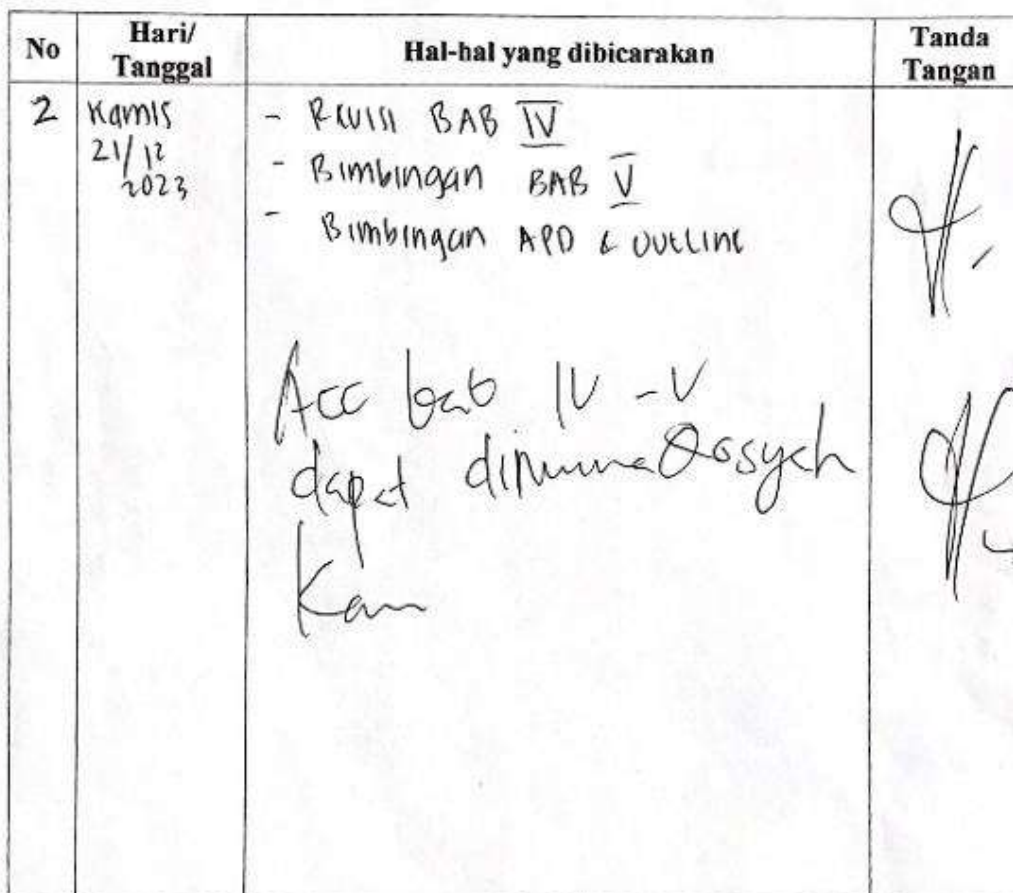 No Hari/ Tanggal Hal-hal yang dibicarakan Tanda Tangan
2 Kamis - Revisi BAB IV
21/12 - Bimbingan BAB V
2023 - Bimbingan APD & OUTLINE
Acc bab IV - V
dapat dimunaQosyah
Kan